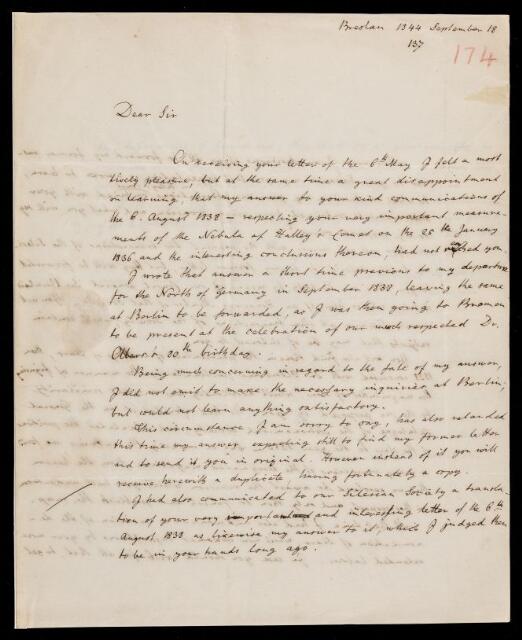 Breslau 1844 September 18
137
174
Dear Sir
On receiving your letter of the 6th May I felt a most
lively pleasure, but at the same time a great disappointment
on learning, that my answer to your kind communications of
the 6. August 1838 – respecting your very important measure-
ments of the Nebula of Halley's Comet on the 26th January
1836 and the interesting conclusions thereon, had not reached you.
I wrote that answer a short time previous to my departure
for the North of Germany in September 1838, leaving the same
at Berlin to be forwarded, as I was then going to Bremen
to be present at the celebration of our much respected Dr.
Olbers's 80th birthday.
Being much concerning in regard to the fate of my answer,
I did not omit to make the necessary inquiries, at Berlin;
but could not learn anything satisfactory.
This circumstance, I am sorry to say, has also retarded
this time my answer, expecting still to find my former letter
and to send it you in original. However instead of it you will
receive herewith a duplicate, having fortunately a copy.
I had also communicated to our Silesian Society a transla-
tion of your very important and interesting letter of the 6th
August 1838 as likewise my answer to it, which I judged then
to be in your hands long ago.